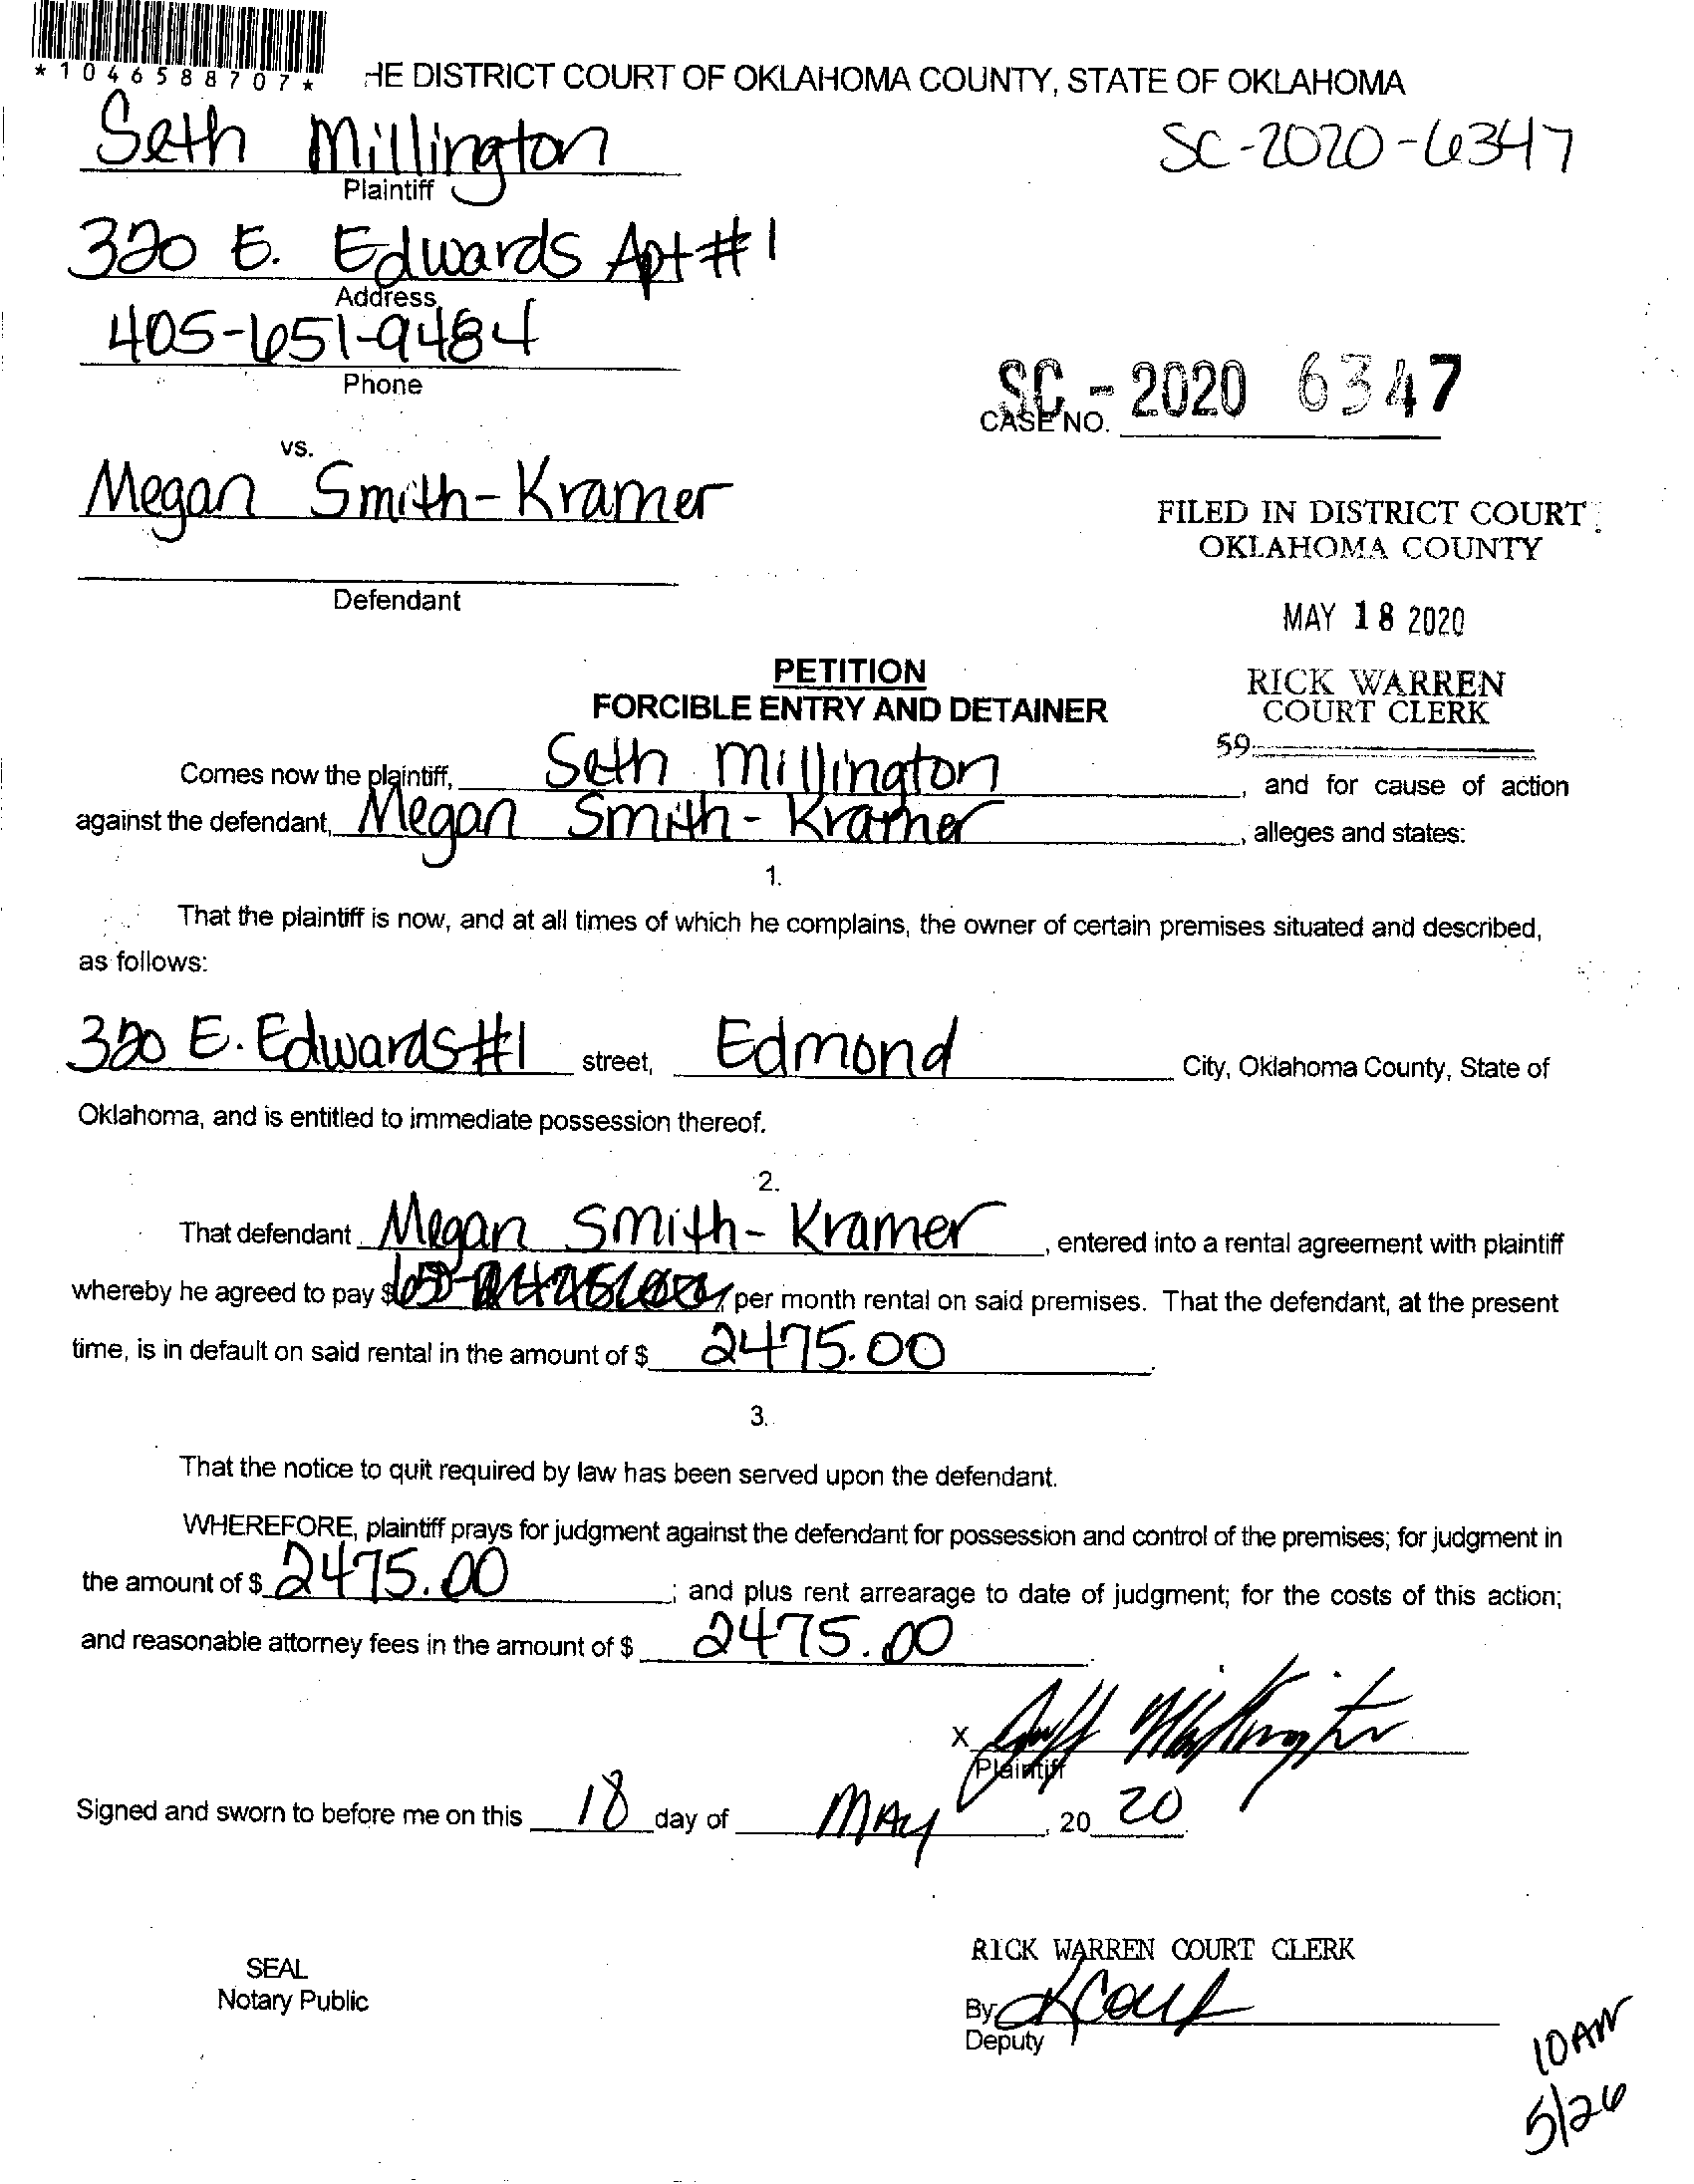 *1046588707*
HE DISTRICT COURT OF OKLAHOMA COUNTY, STATE OF OKLAHOMA
Seth Millington
SC-2020-6347
Plaintiff
320 E. Edwards Apt #1
Address
405-651-9484
Phone
SC - 2020 6347
CASE NO.
vs.
Megan Smith-Kramer
FILED IN DISTRICT COURT
OKLAHOMA COUNTY
Defendant
MAY 18 2020
PETITION
RICK WARREN
FORCIBLE ENTRY AND DETAINER
COURT CLERK
59
Comes now the plaintiff, Seth Millington, and for cause of action
against the defendant, Megan Smith-Kramer, alleges and states:
1.
That the plaintiff is now, and at all times of which he complains, the owner of certain premises situated and described,
as follows:
320 E. Edwards #1 street, Edmond City, Oklahoma County, State of
Oklahoma, and is entitled to immediate possession thereof.
2.
That defendant Megan Smith-Kramer, entered into a rental agreement with plaintiff
whereby he agreed to pay $ per month rental on said premises. That the defendant, at the present
time, is in default on said rental in the amount of $ 2475.00.
3.
That the notice to quit required by law has been served upon the defendant.
WHEREFORE, plaintiff prays for judgment against the defendant for possession and control of the premises; for judgment in
the amount of $ 2475.00; and plus rent arrearage to date of judgment; for the costs of this action;
and reasonable attorney fees in the amount of $ 2475.00.
X
Plaintiff
Signed and sworn to before me on this 18 day of MAY, 20 20.
RICK WARREN COURT CLERK
SEAL
Notary Public
By
Deputy
10AM
5/26